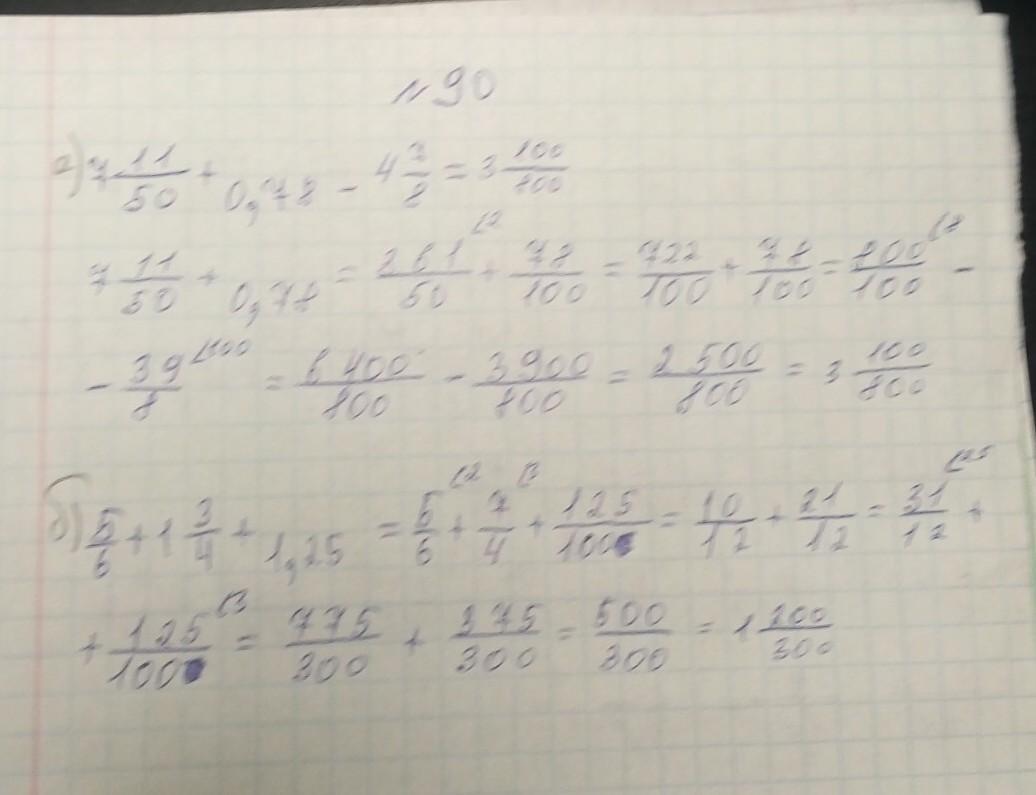 №90
а) 7 11/50 + 0,78 - 4 7/8 = 3 100/800
7 11/50 + 0,78 = 361/50 (2 + 78/100 = 722/100 + 78/100 = 800/100 (8 -
- 39/8 (100 = 6400/800 - 3900/800 = 2500/800 = 3 100/800
б) 5/6 + 1 3/4 + 1,25 = 5/6 (2 + 7/4 (3 + 125/100 = 10/12 + 21/12 = 31/12 (25 +
+ 125/100 (3 = 775/300 + 375/300 = 500/300 = 1 200/300